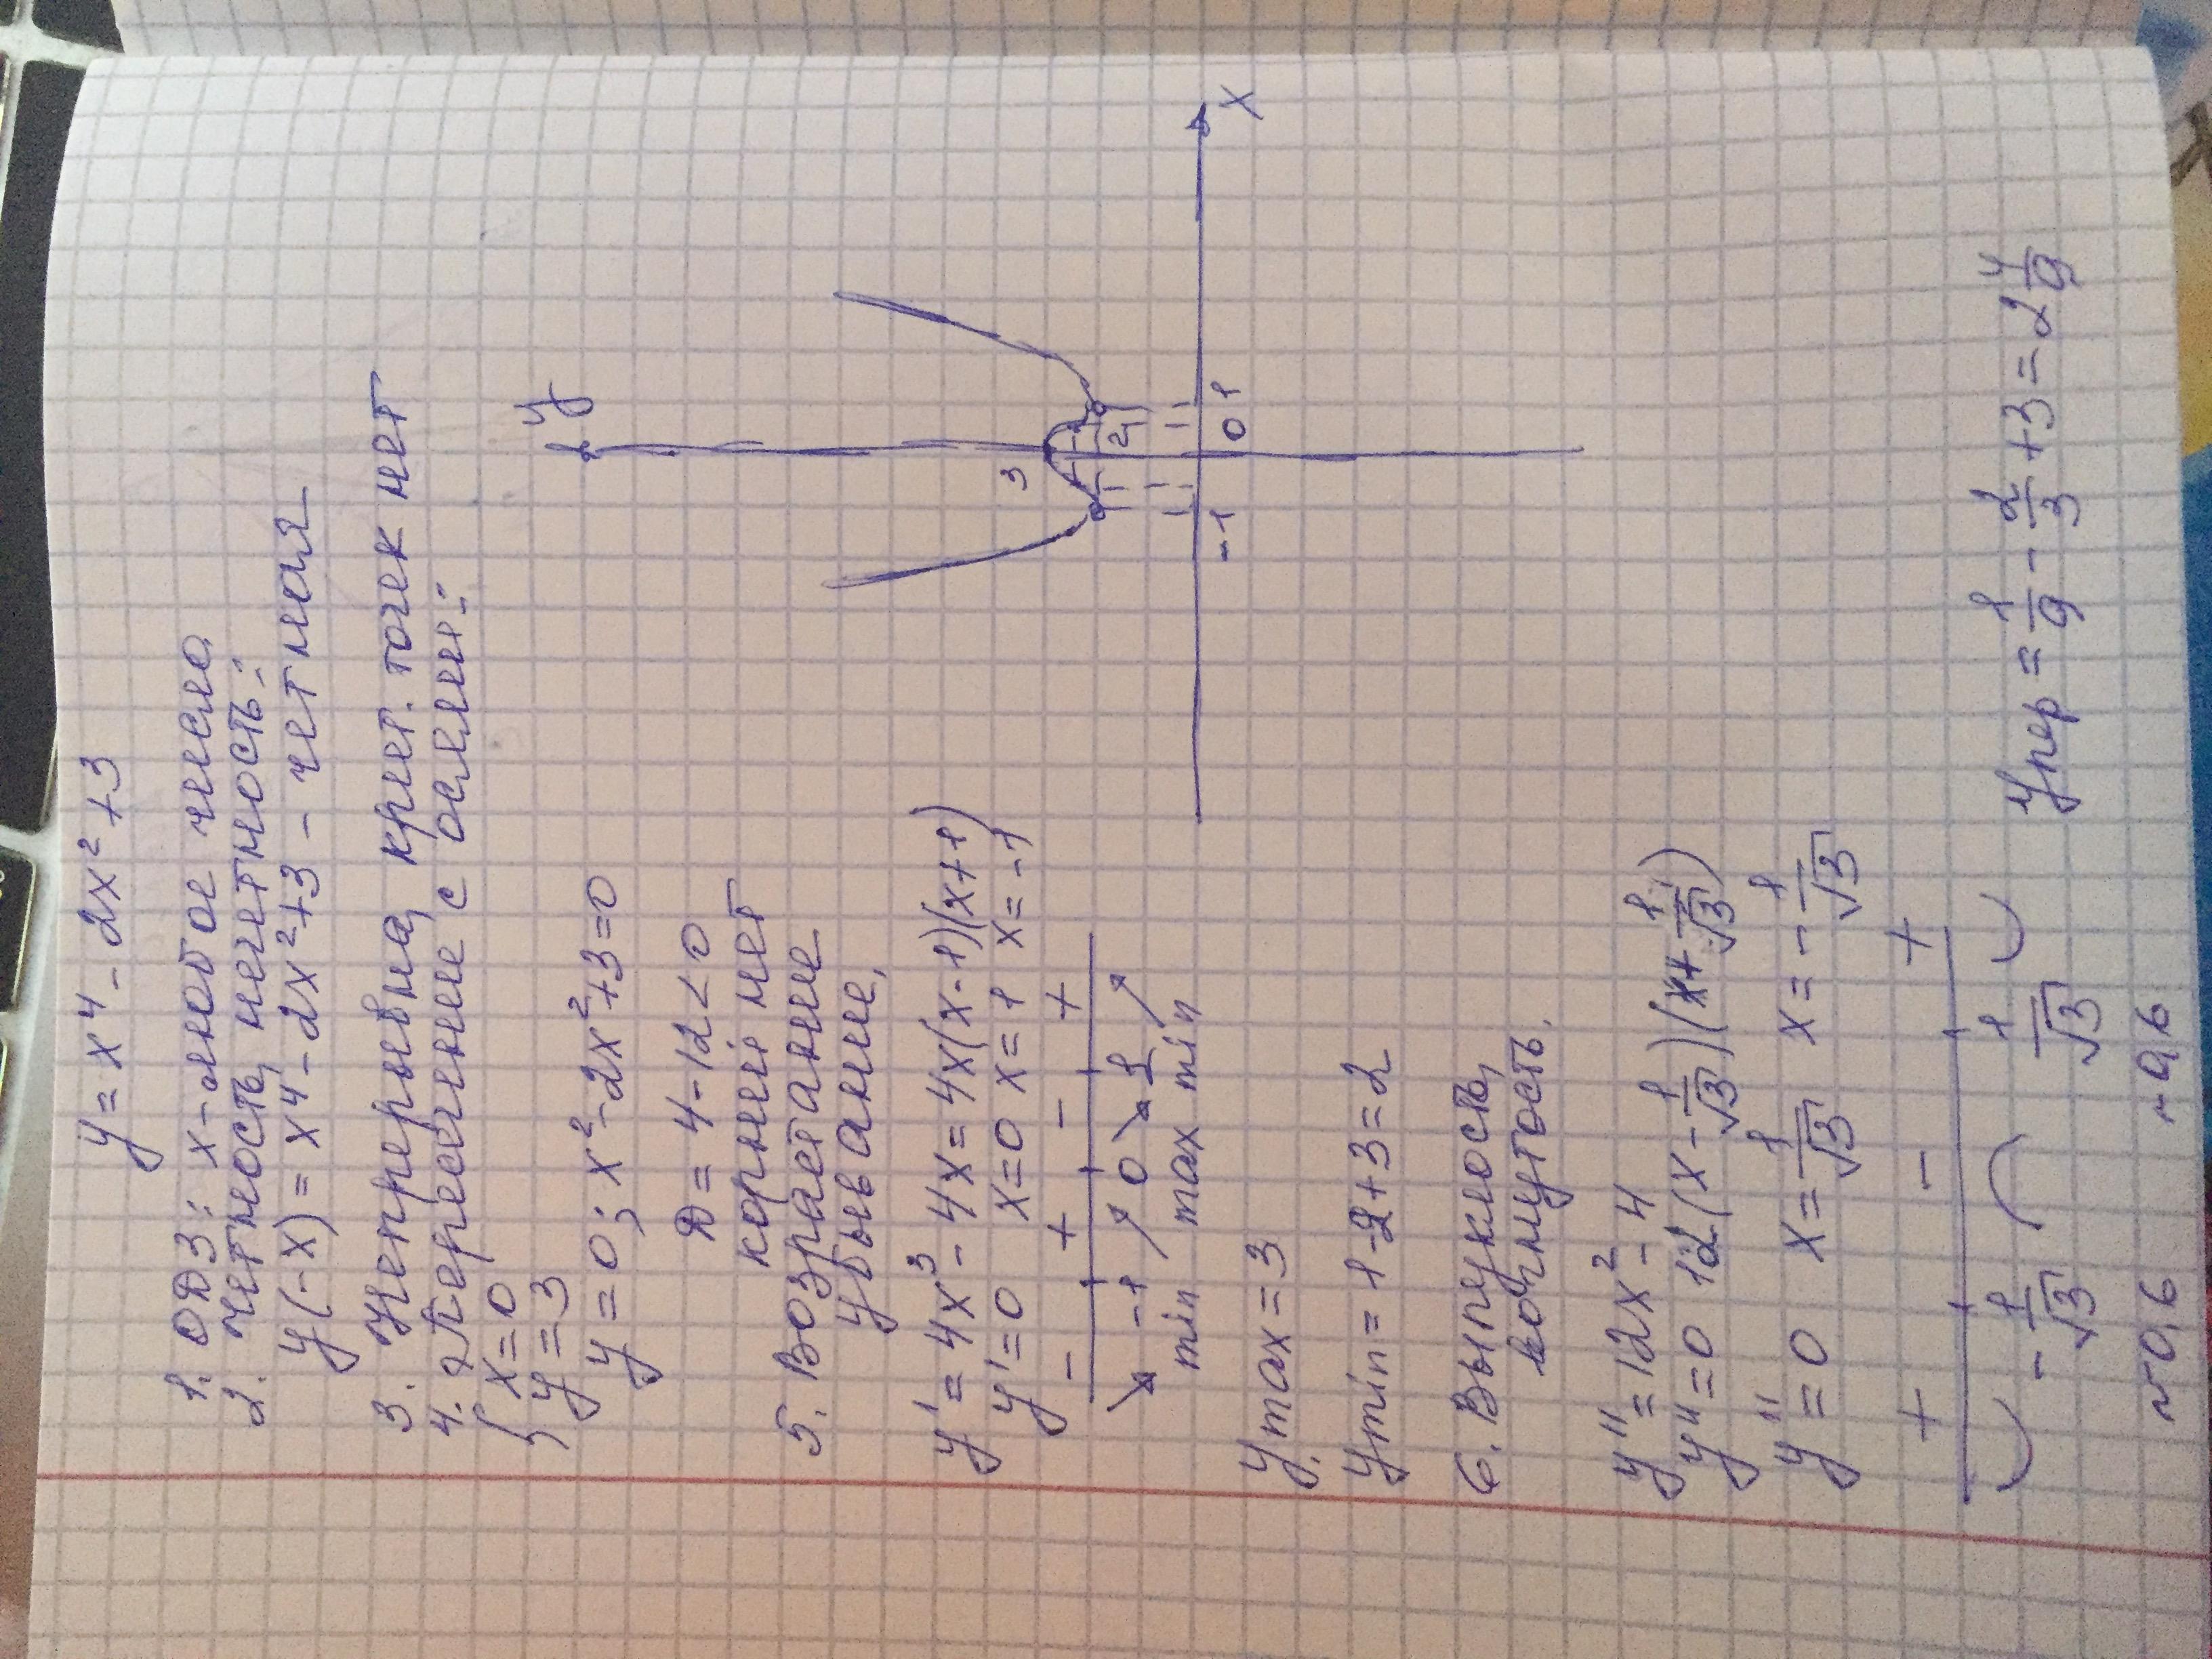 y = x⁴ - 2x² + 3
1. ОДЗ: x - любое число.
2. Четность, нечетность:
y(-x) = x⁴ - 2x² + 3 - четная
3. Непрерывна, крит. точек нет
4. Пересечение с осями:
{ x = 0
y = 3
y = 0; x² - 2x² + 3 = 0
D = 4 - 12 < 0
корней нет
5. Возрастание
убывание,
y' = 4x³ - 4x = 4x(x-1)(x+1)
y' = 0 x=0 x=1 x=-1
- + - +
-1 0 1
min max min
y max = 3
y min = 1-2+3=2
6. Выпуклость,
вогнутость.
y'' = 12x² - 4
y'' = 0 12(x - 1/√3)(x + 1/√3)
y'' = 0 x = 1/√3 x = - 1/√3
+ - +
- 1/√3 1/√3
~0,6 ~0,6
y пер = 1/9 - 2/3 + 3 = 2 4/9
y
3
2
-1 0 1
x